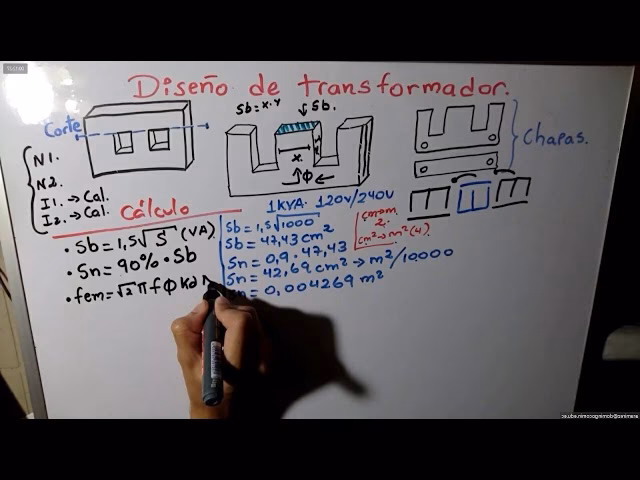 Diseño de transformador.
Corte
Sb=x.y
Sb.
x
ϕ
Chapas.
N1.
N2.
I1.→Cal.
I2.→Cal.
Cálculo
1KVA. 120V/240V
•Sb=1,5√S (VA)
•Sn=90%•Sb
•fem=√2πfϕKd
Sb=1,5√1000
Sb=47,43cm²
Sn=0,9.47,43
Sn=42,69cm²→m²/10,000
Sn=0,004269m²
cm→m
2.
cm²→m²(4).